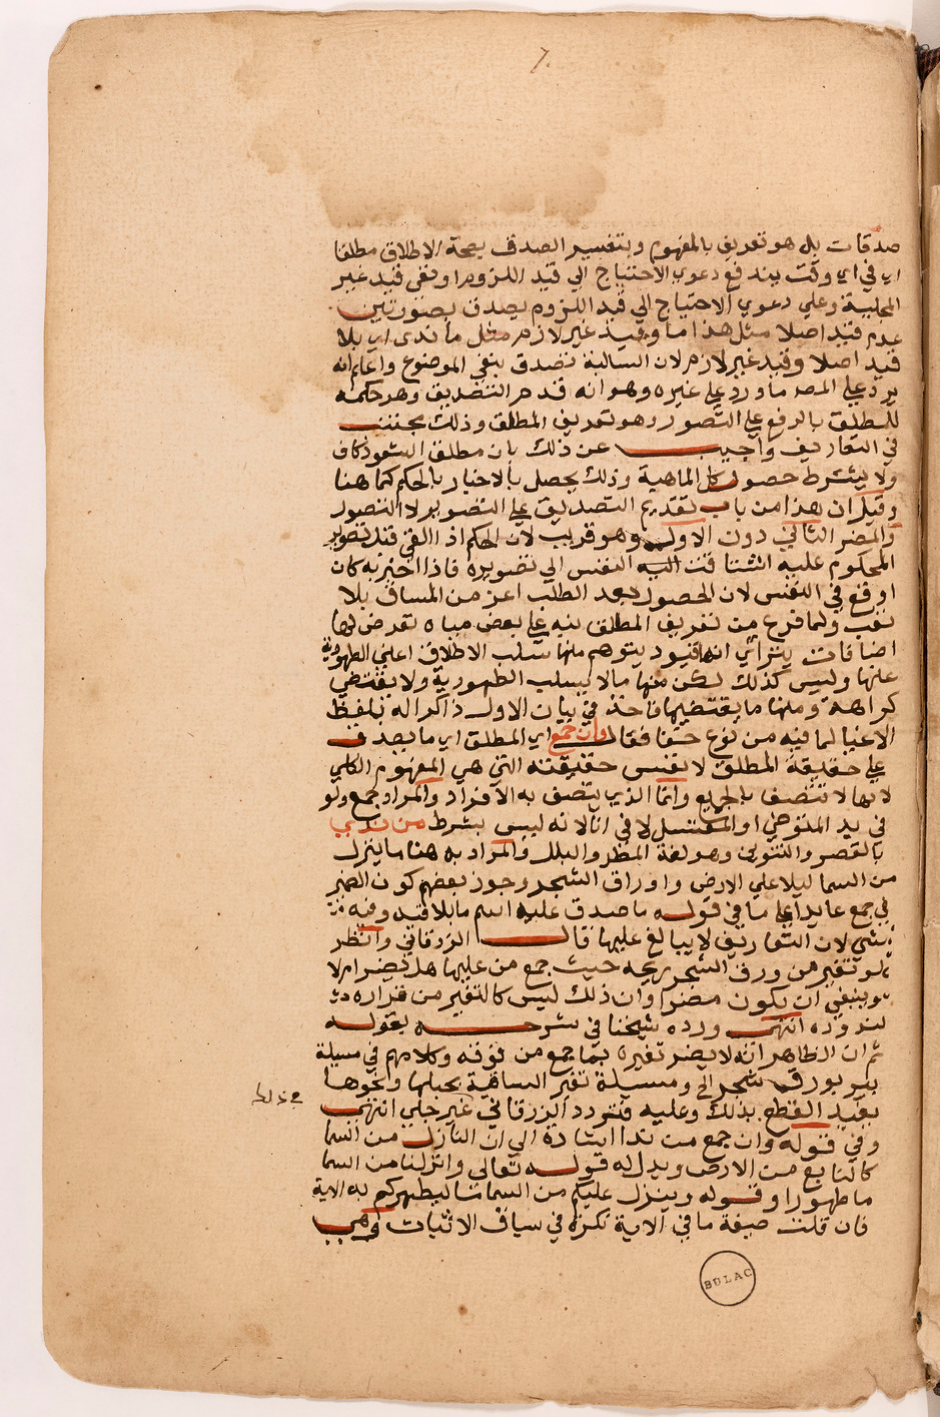 صدقات بل هو تعريف بالمفهوم وبتفسير الصدق بصحة الاطلاق مطلقا
اي في اي وقت يندفع دعوي الاحتياج الي قيد اللزوم او نفي قيد غير
المحلبية وعلي دعوي الاحتياج الي قيد اللزوم يصدق بصورتين
عدم قيد اصلا مثل هذا ما وقيد غير لازم مثل ما ندي اي بلا
قيد اصلا وقيد غير لازم لان السالبة تصدق بنفي الموضوع واعلم انه
يرد علي المصـ ما ورد علي غيره وهو انه قدم التصديق وهو حكمه
للمطلق بالرفع علي التصور وهو تعريف المطلق وذلك يجتنب
في التعاريف واجيب عن ذلك بان مطلق الشعور كاف
ولا يشترط حصول كل الماهية وذلك يحصل بالاخبار بالحكم كما هنا
وقيل ان هذا من باب تقديم التصديق علي التصوير لا التصور
والمضر الثاني دون الاول وهو قريب لان الحكم اذا القي قبل تصوير
المحكوم عليه اشتاقت اليه النفس الي تصويره فاذا اخبر به كان
اوقع في النفس لان الحصول بعد الطلب اعز من المساق بلا
تعب ولما فرغ من تعريف المطلق نبه علي بعض مياه تعرض لها
اضافات يتراي انها قيود يتوهم منها سلب الاطلاق اعني الطهورية
عنها وليس كذلك لكن منها ما لا يسلب الطهورية ولا يقتضي
كراهة ومنها ما يقتضيها فاخذ في بيان الاول ذاكرا له بلفظ
الاغيا لما فيه من نوع خفا فقال وان جمع اي المطلق اي ما يصدق
علي حقيقة المطلق لا نفس حقيقته التي هي المفهوم الكلي
لانها لا تتصف بالجمع وانما الذي يتصف به الافراد والمراد جمع ولو
في يد المتوضي او المغتسل لا في انا لانه ليس بشرط من ندي
بالقصر والتنوين وهو لغة المطر والبلل والمراد به هنا ما ينزل
من السما ليلا علي الارض واوراق الشجر وجوز بعضهم كون الضمير
في جمع عايدا علي ما في قوله ما صدق عليه اسم ما بلا قيد وفيه
شي لان التعاريف لا يبالغ عليها قال الزرقاني وانظر
لو تغير من ورق الشجر ريحه حيث جمع من عليها هل يضر ام لا
وينبغي ان يكون مضرا وان ذلك ليس كالتغير من قراره
انتهي ورده شيخنا في شرحه بقوله
ثم ان الظاهر انه لا يضر تغيره بما جمع من فوقه وكلامهم في مسيلة
بير بورق شجر الخ ومسيلة تغير الساقية بحبلها ونحوها
يفيد القطع بذلك وعليه فتردد الزرقاني غير جلي انتهي
وفي قوله وان جمع من ندا اشارة الي ان النازل من السما
كالنابع من الارض ويدل له قوله تعالي وانزلنا من السما
ما طهورا وقوله وينزل عليكم من السما ما ليطهركم به الاية
فان قلت صيغة ما في الاية نكرة في سياق الاثبات وهي
BDLAC